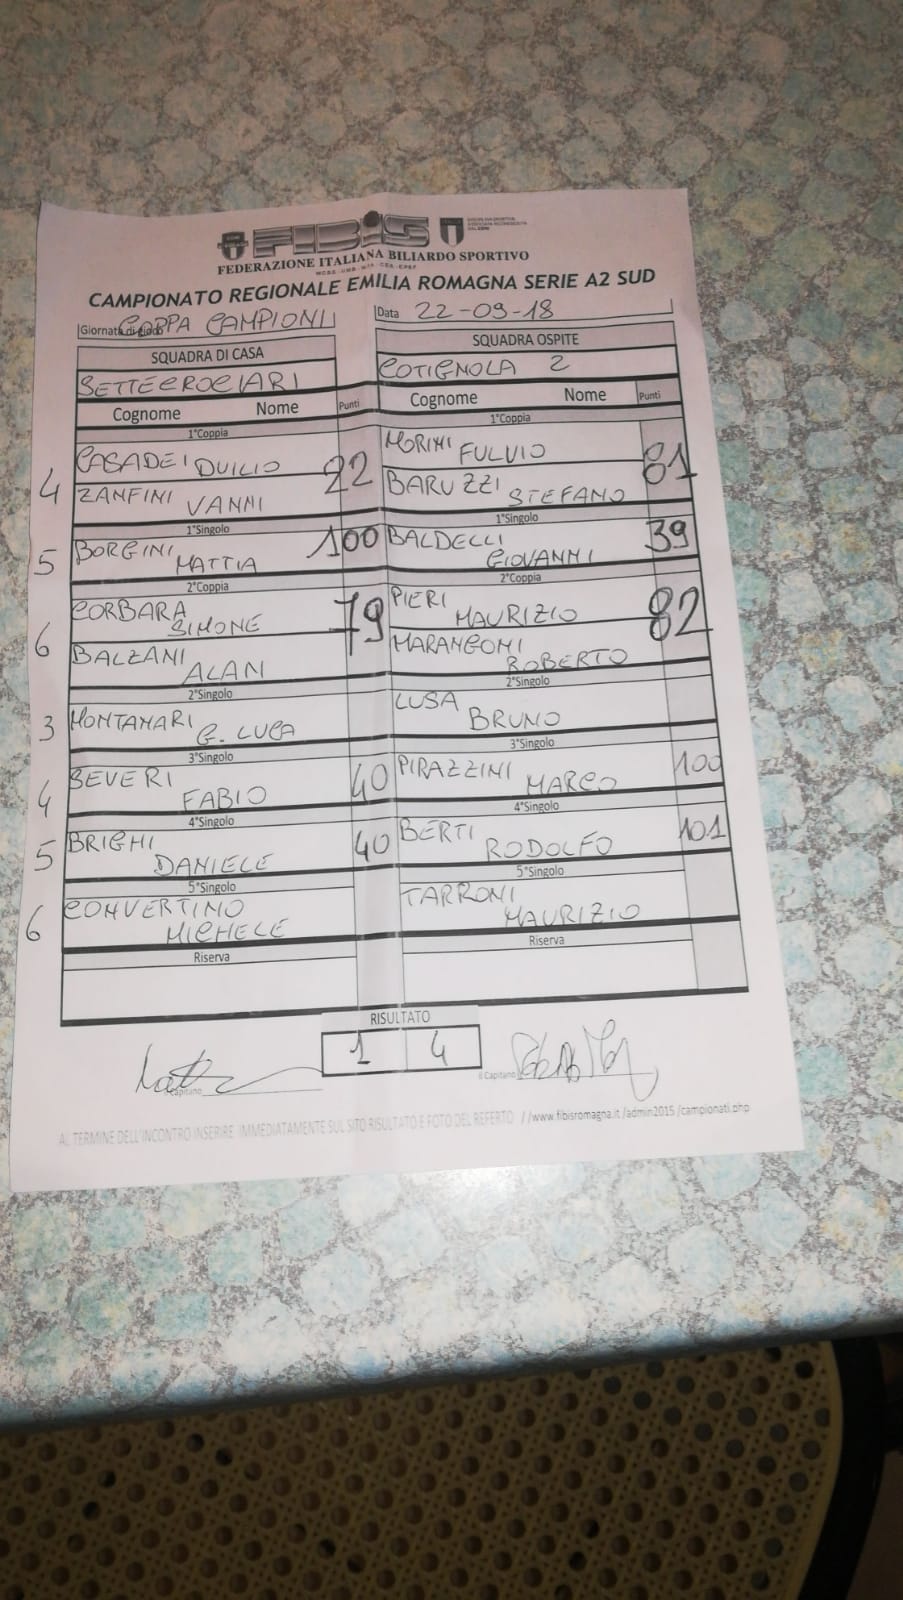 FIBIS
FEDERAZIONE ITALIANA BILIARDO SPORTIVO
CAMPIONATO REGIONALE EMILIA ROMAGNA SERIE A2 SUD
Giornata di gioco COPPA CAMPIONI
Data 22-09-18
SQUADRA DI CASA
SQUADRA OSPITE
SETTECROCIARI
COTIGNOLA 2
Cognome Nome Punti
Cognome Nome Punti
1°Coppia
1°Coppia
4 CASADEI DUILIO 22
ZANFINI VANNI
MORINI FULVIO 81
BARUZZI STEFANO
1°Singolo
1°Singolo
5 BORGINI MATTIA 100
BALDELLI GIOVANNI 39
2°Coppia
2°Coppia
6 CORBARA SIMONE 79
BALZANI ALAN
PIERI MAURIZIO 82
MARANGONI ROBERTO
2°Singolo
2°Singolo
3 MONTANARI G. LUCA
LUSA BRUNO
3°Singolo
3°Singolo
4 SEVERI FABIO 40
PIRAZZINI MARCO 100
4°Singolo
4°Singolo
5 BRIGHI DANIELE 40
BERTI RODOLFO 101
5°Singolo
5°Singolo
6 CONVERTINO MICHELE
TARRONI MAURIZIO
Riserva
Riserva
RISULTATO
1 4
Il Capitano
Il Capitano
AL TERMINE DELL'INCONTRO INSERIRE IMMEDIATAMENTE SUL SITO RISULTATO E FOTO DEL REFERTO //www.fibisromagna.it/admin2015/campionati.php